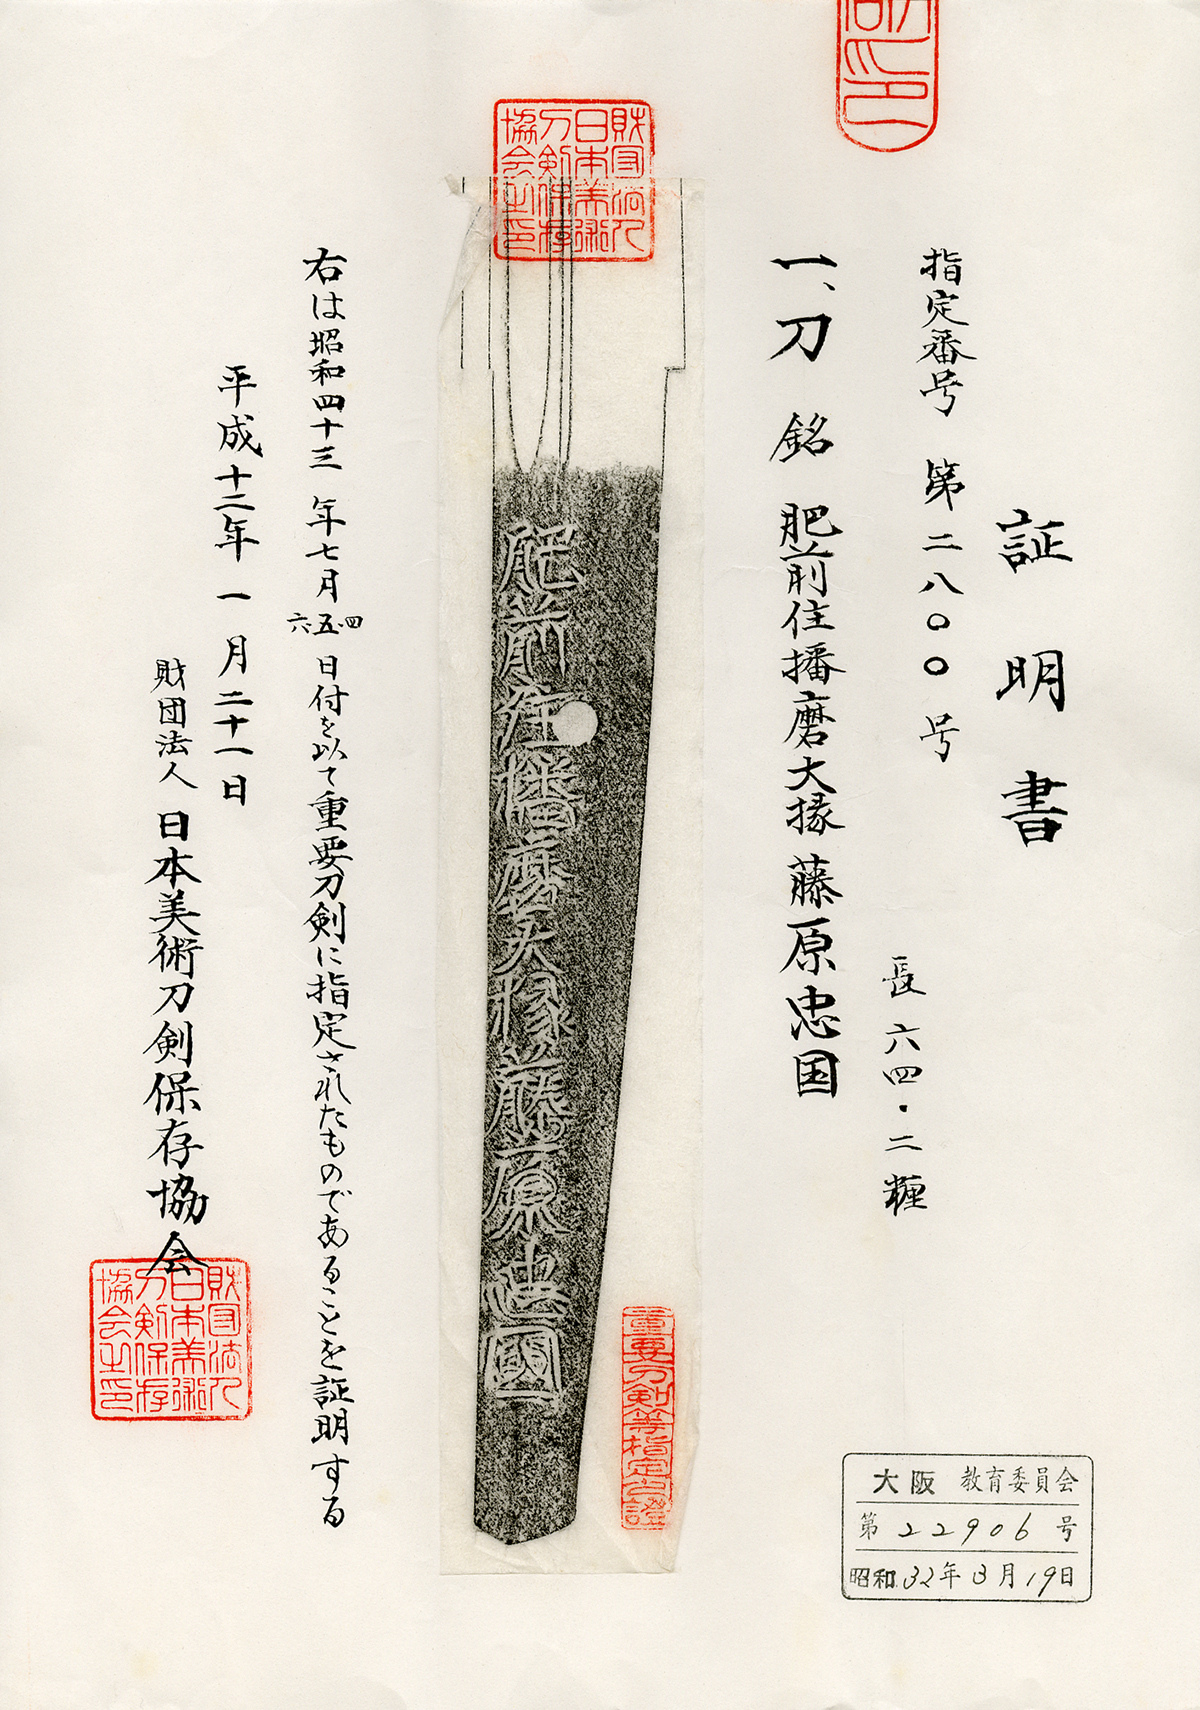 証明書
指定番号 第二八〇〇号
一、刀 銘 肥前住播磨大掾藤原忠国
長 六四・二糎
財団法人
日本美術
刀剣保存
協会之印
肥前住播磨大掾藤原忠國
重要刀剣等指定之證
右は昭和四十三年七月四・五・六日付を以て重要刀剣に指定されたものであることを証明する
平成十二年一月二十一日
財団法人 日本美術刀剣保存協会
財団法人
日本美術
刀剣保存
協会之印
大阪 教育委員会
第 22906 号
昭和 32年 3月 19日